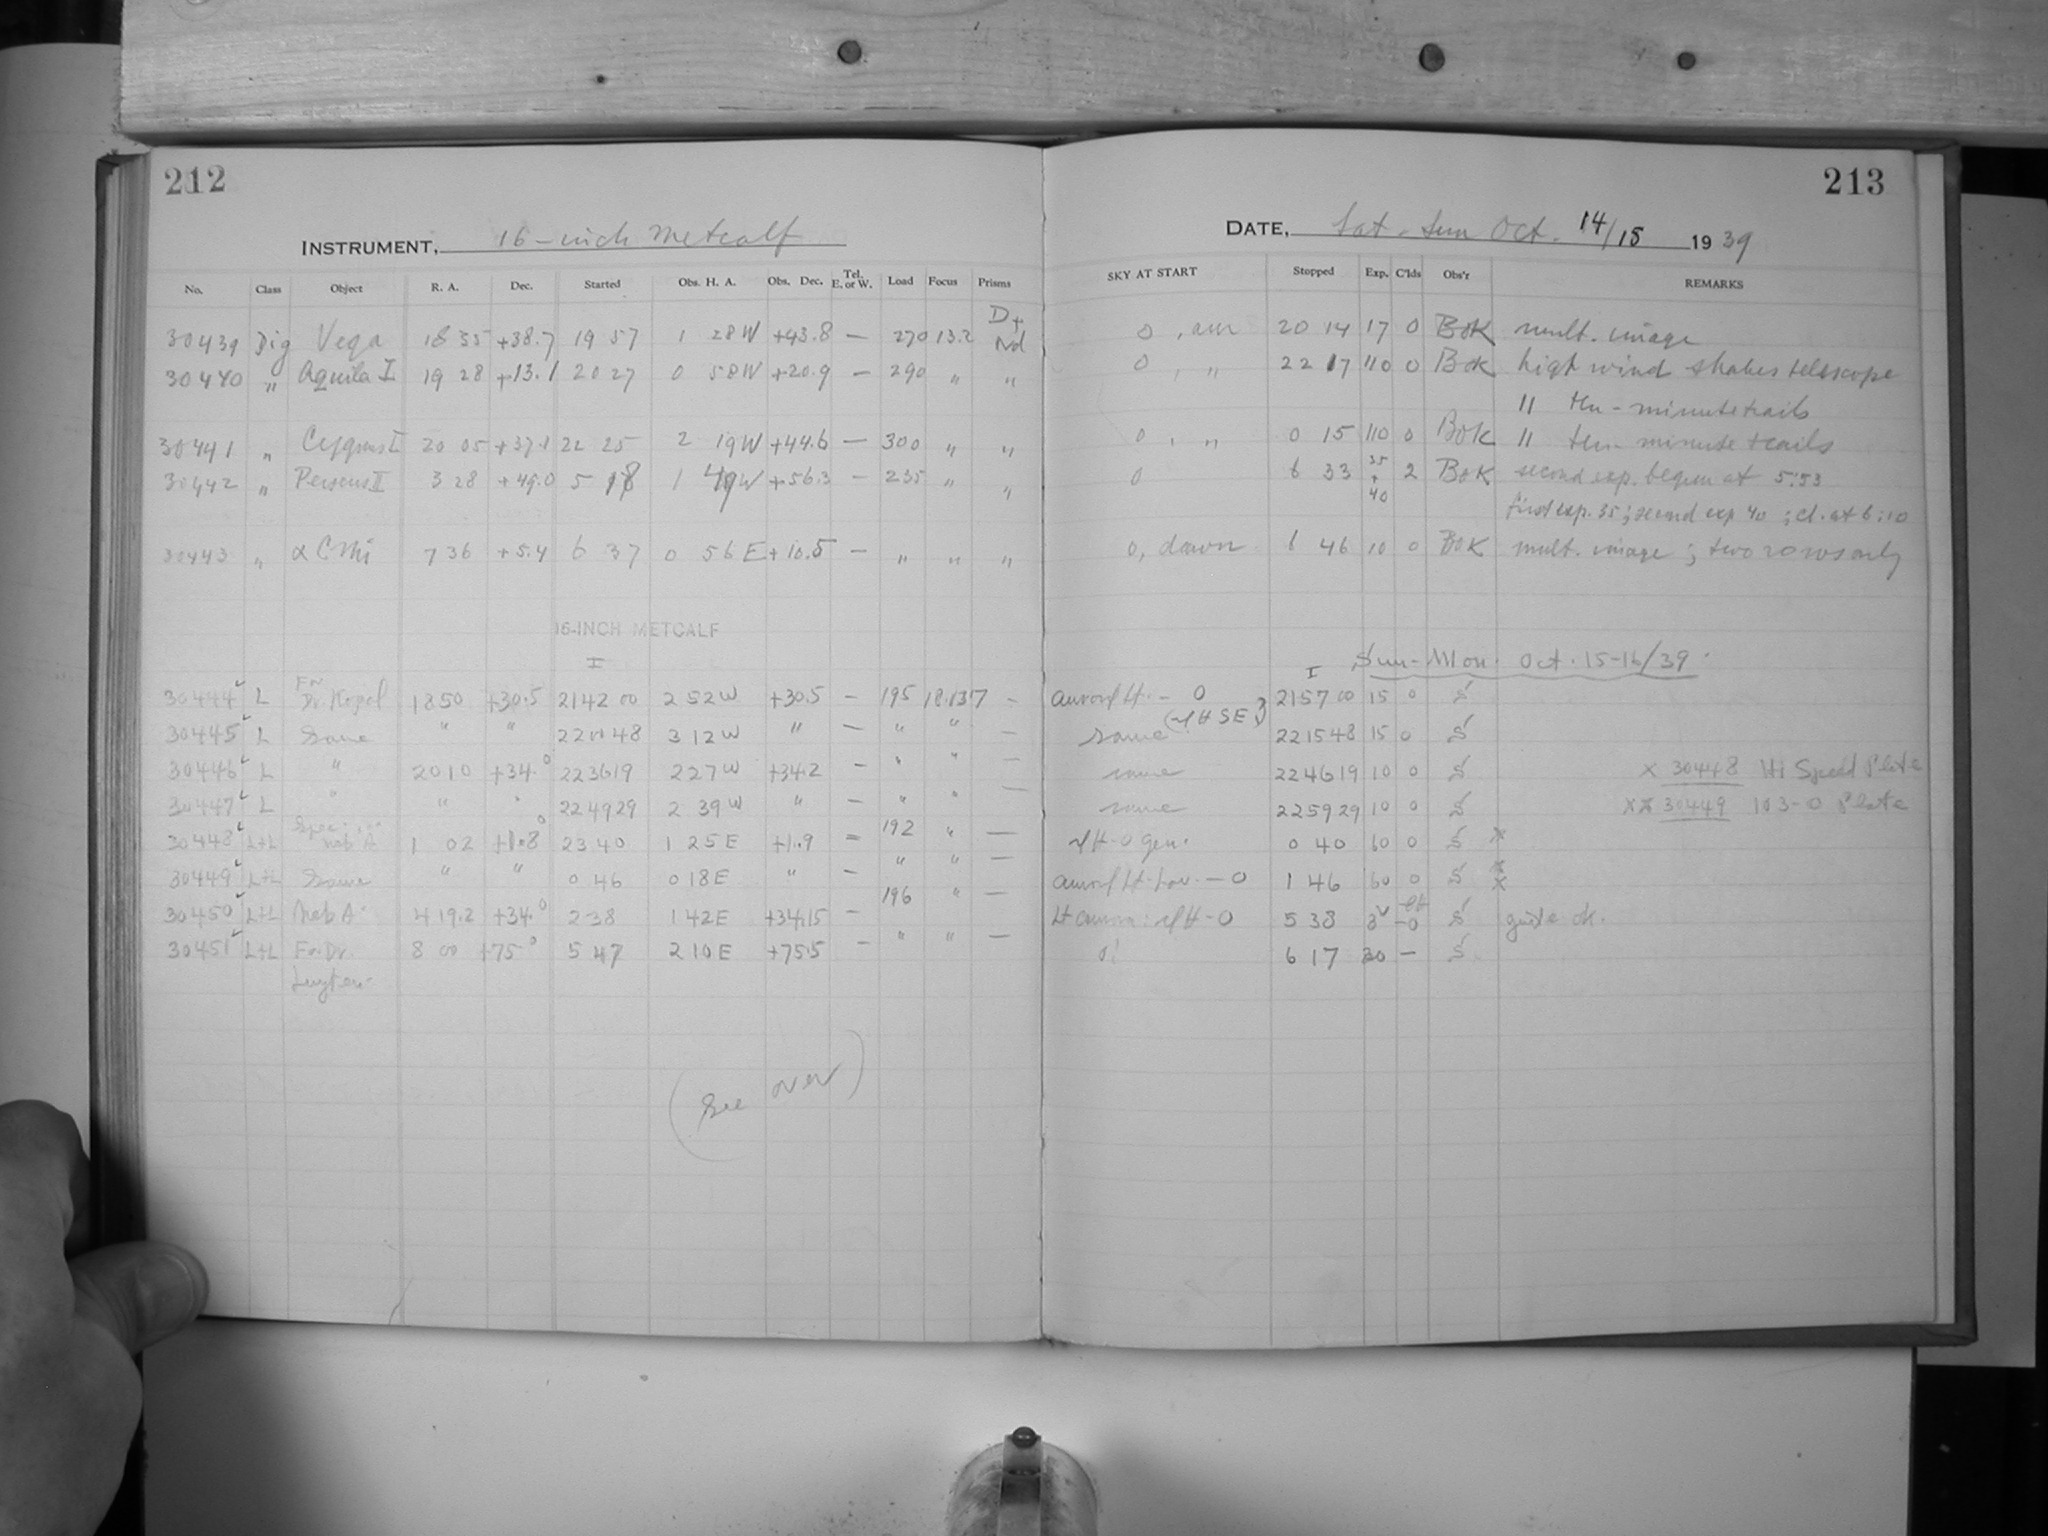 212
213
INSTRUMENT, 16-inch Metcalf
DATE, Sat-Sun Oct. 14/15 1939
No. Class Object R. A. Dec. Started Obs. H. A. Obs. Dec. Tel. E. or W. Load Focus Prisms SKY AT START Stopped Exp. C'lds Obs'r REMARKS
30439 Dig Vega 18 35 +38.7 19 57 1 28W +43.8 — 270 13.2 D+ Nd 0, 20 14 17 0 BOK mult. image
30440 " Aquila I 19 28 +13.1 20 27 0 58W +20.9 — 290 " " 0, " 22 17 110 0 BOK high wind shakes telescope
11 ten-minute trails
30441 " Cygnus I 20 05 +37.1 22 25 2 19W +44.6 — 300 " " 0, " 0 15 110 0 BOK 11 ten minute trails
30442 " Perseus II 3 28 +49.0 5 18 1 49W +56.3 — 235 " " 0 6 33 35 + 40 2 BOK second exp. begun at 5:53
first exp. 35; second exp 40; cl. at 6:10
30443 " α CMi 7 36 +5.4 6 37 0 56E +10.5 — " " " 0, dawn 6 46 10 0 BOK mult. image; two rows only
16-INCH METCALF
Sun-Mon. Oct. 15-16/39
I I
30444 L For Dr. Kopal 18 50 +30.5 21 42 00 2 52W +30.5 — 195 18.137 — 0 21 57 00 15 0 S
30445 L Same " " 22 48 3 12W " — " " — same 22 15 48 15 0 S
30446 L " 20 10 +34.0 22 36 19 2 27W +34.2 — " " — same 22 46 19 10 0 S x 30448 Hi Speed Plate
30447 L " " " 22 49 29 2 39W " — " " — same 22 59 29 10 0 S xx 30449 103-O Plate
30448 L+L Neb A 1 02 +1.8 23 40 1 25E +1.9 — 192 " — 0 gen. 0 40 60 0 S x
30449 L+L Same " " 0 46 0 18E " — " " — 0 1 46 60 0 S xx
30450 L+L Neb A 4 19.2 +34.0 2 38 1 42E +34.15 — 196 " — 0 5 38 S guide ok.
30451 L+L For Dr. Luyten 8 00 +75° 5 47 2 10E +75.5 — " " — 6 17 30 — S
(See over)